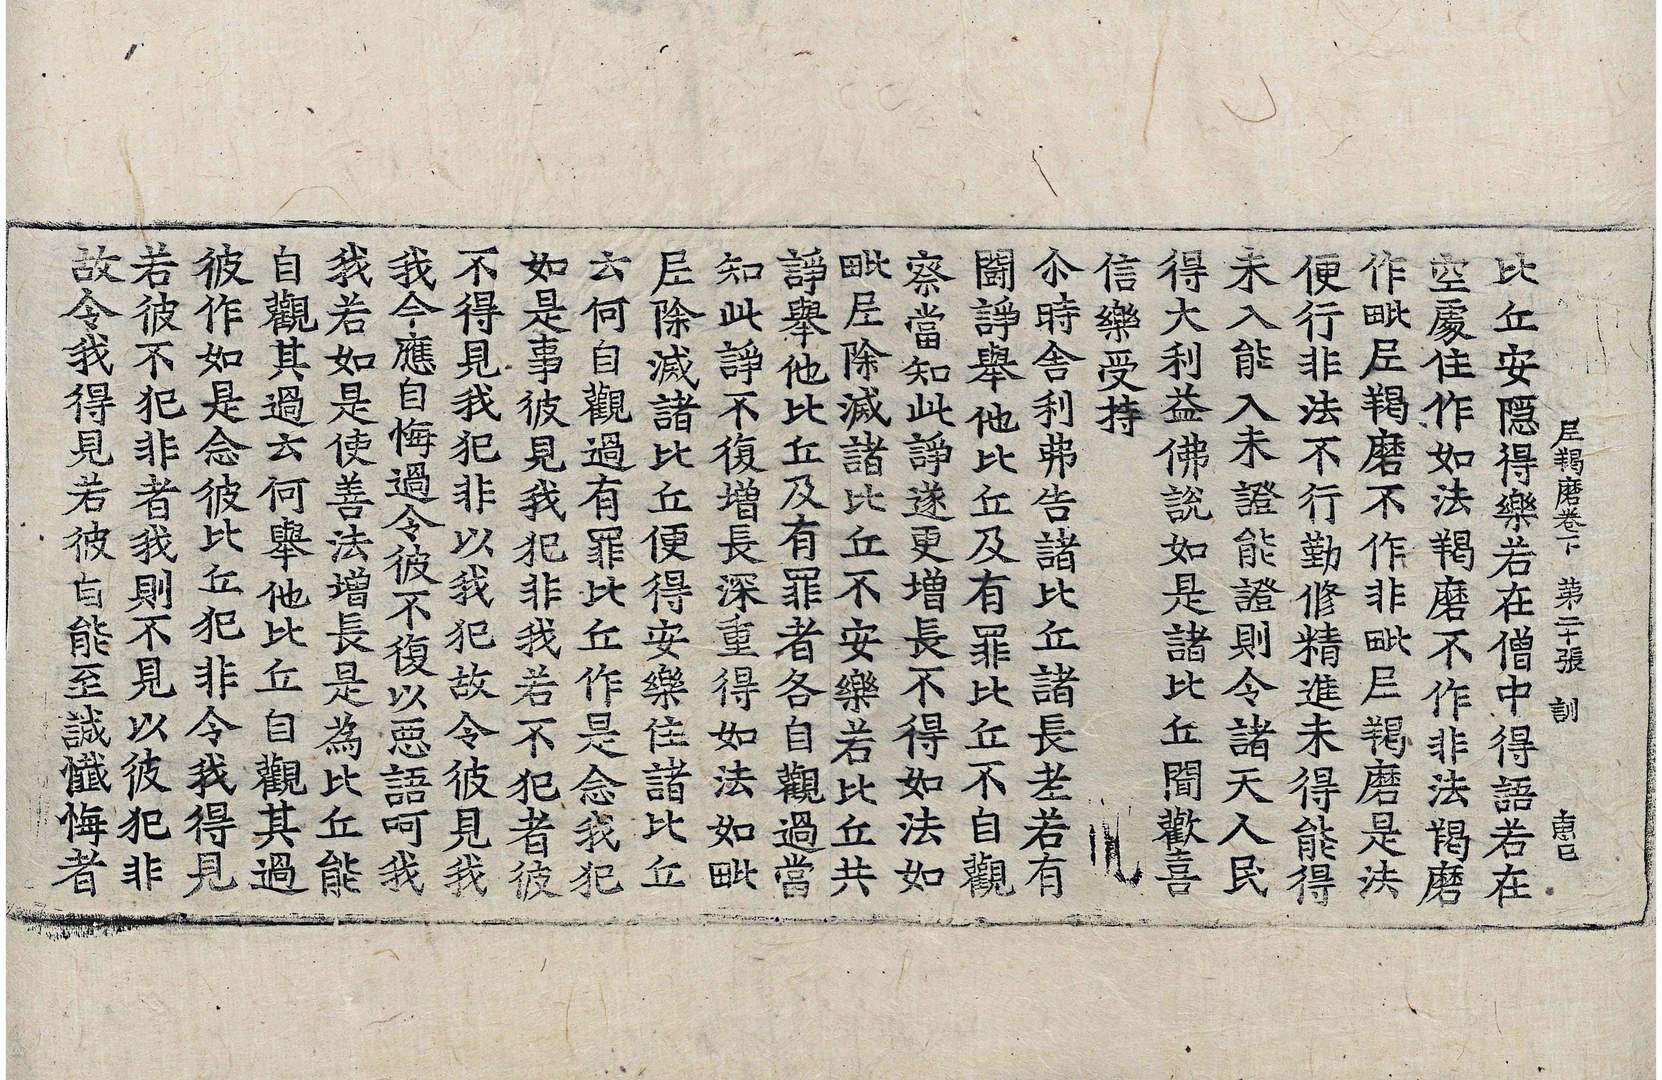 尼羯磨卷下 第二十張 訓
比丘安隱得樂若在僧中得語若在
空處住作如法羯磨不作非法羯磨
作毗尼羯磨不作非毗尼羯磨是法
便行非法不行勤修精進未得能得
未入能入未證能證則令諸天人民
得大利益佛說如是諸比丘聞歡喜
信樂受持
尒時舍利弗告諸比丘諸長老若有
鬪諍舉他比丘及有罪比丘不自觀
察當知此諍遂更增長不得如法如
毗尼除滅諸比丘不安樂若比丘共
諍舉他比丘及有罪者各自觀過當
知此諍不復增長深重得如法如毗
尼除滅諸比丘便得安樂住諸比丘
云何自觀過有罪比丘作是念我犯
如是事彼見我犯非我若不犯者彼
不得見我犯非以我犯故令彼見我
我今應自悔過令彼不復以惡語呵我
我若如是使善法增長是為比丘能
自觀其過云何舉他比丘自觀其過
彼作如是念彼比丘犯非令我得見
若彼不犯非者我則不見以彼犯非
故令我得見若彼自能至誠懺悔者